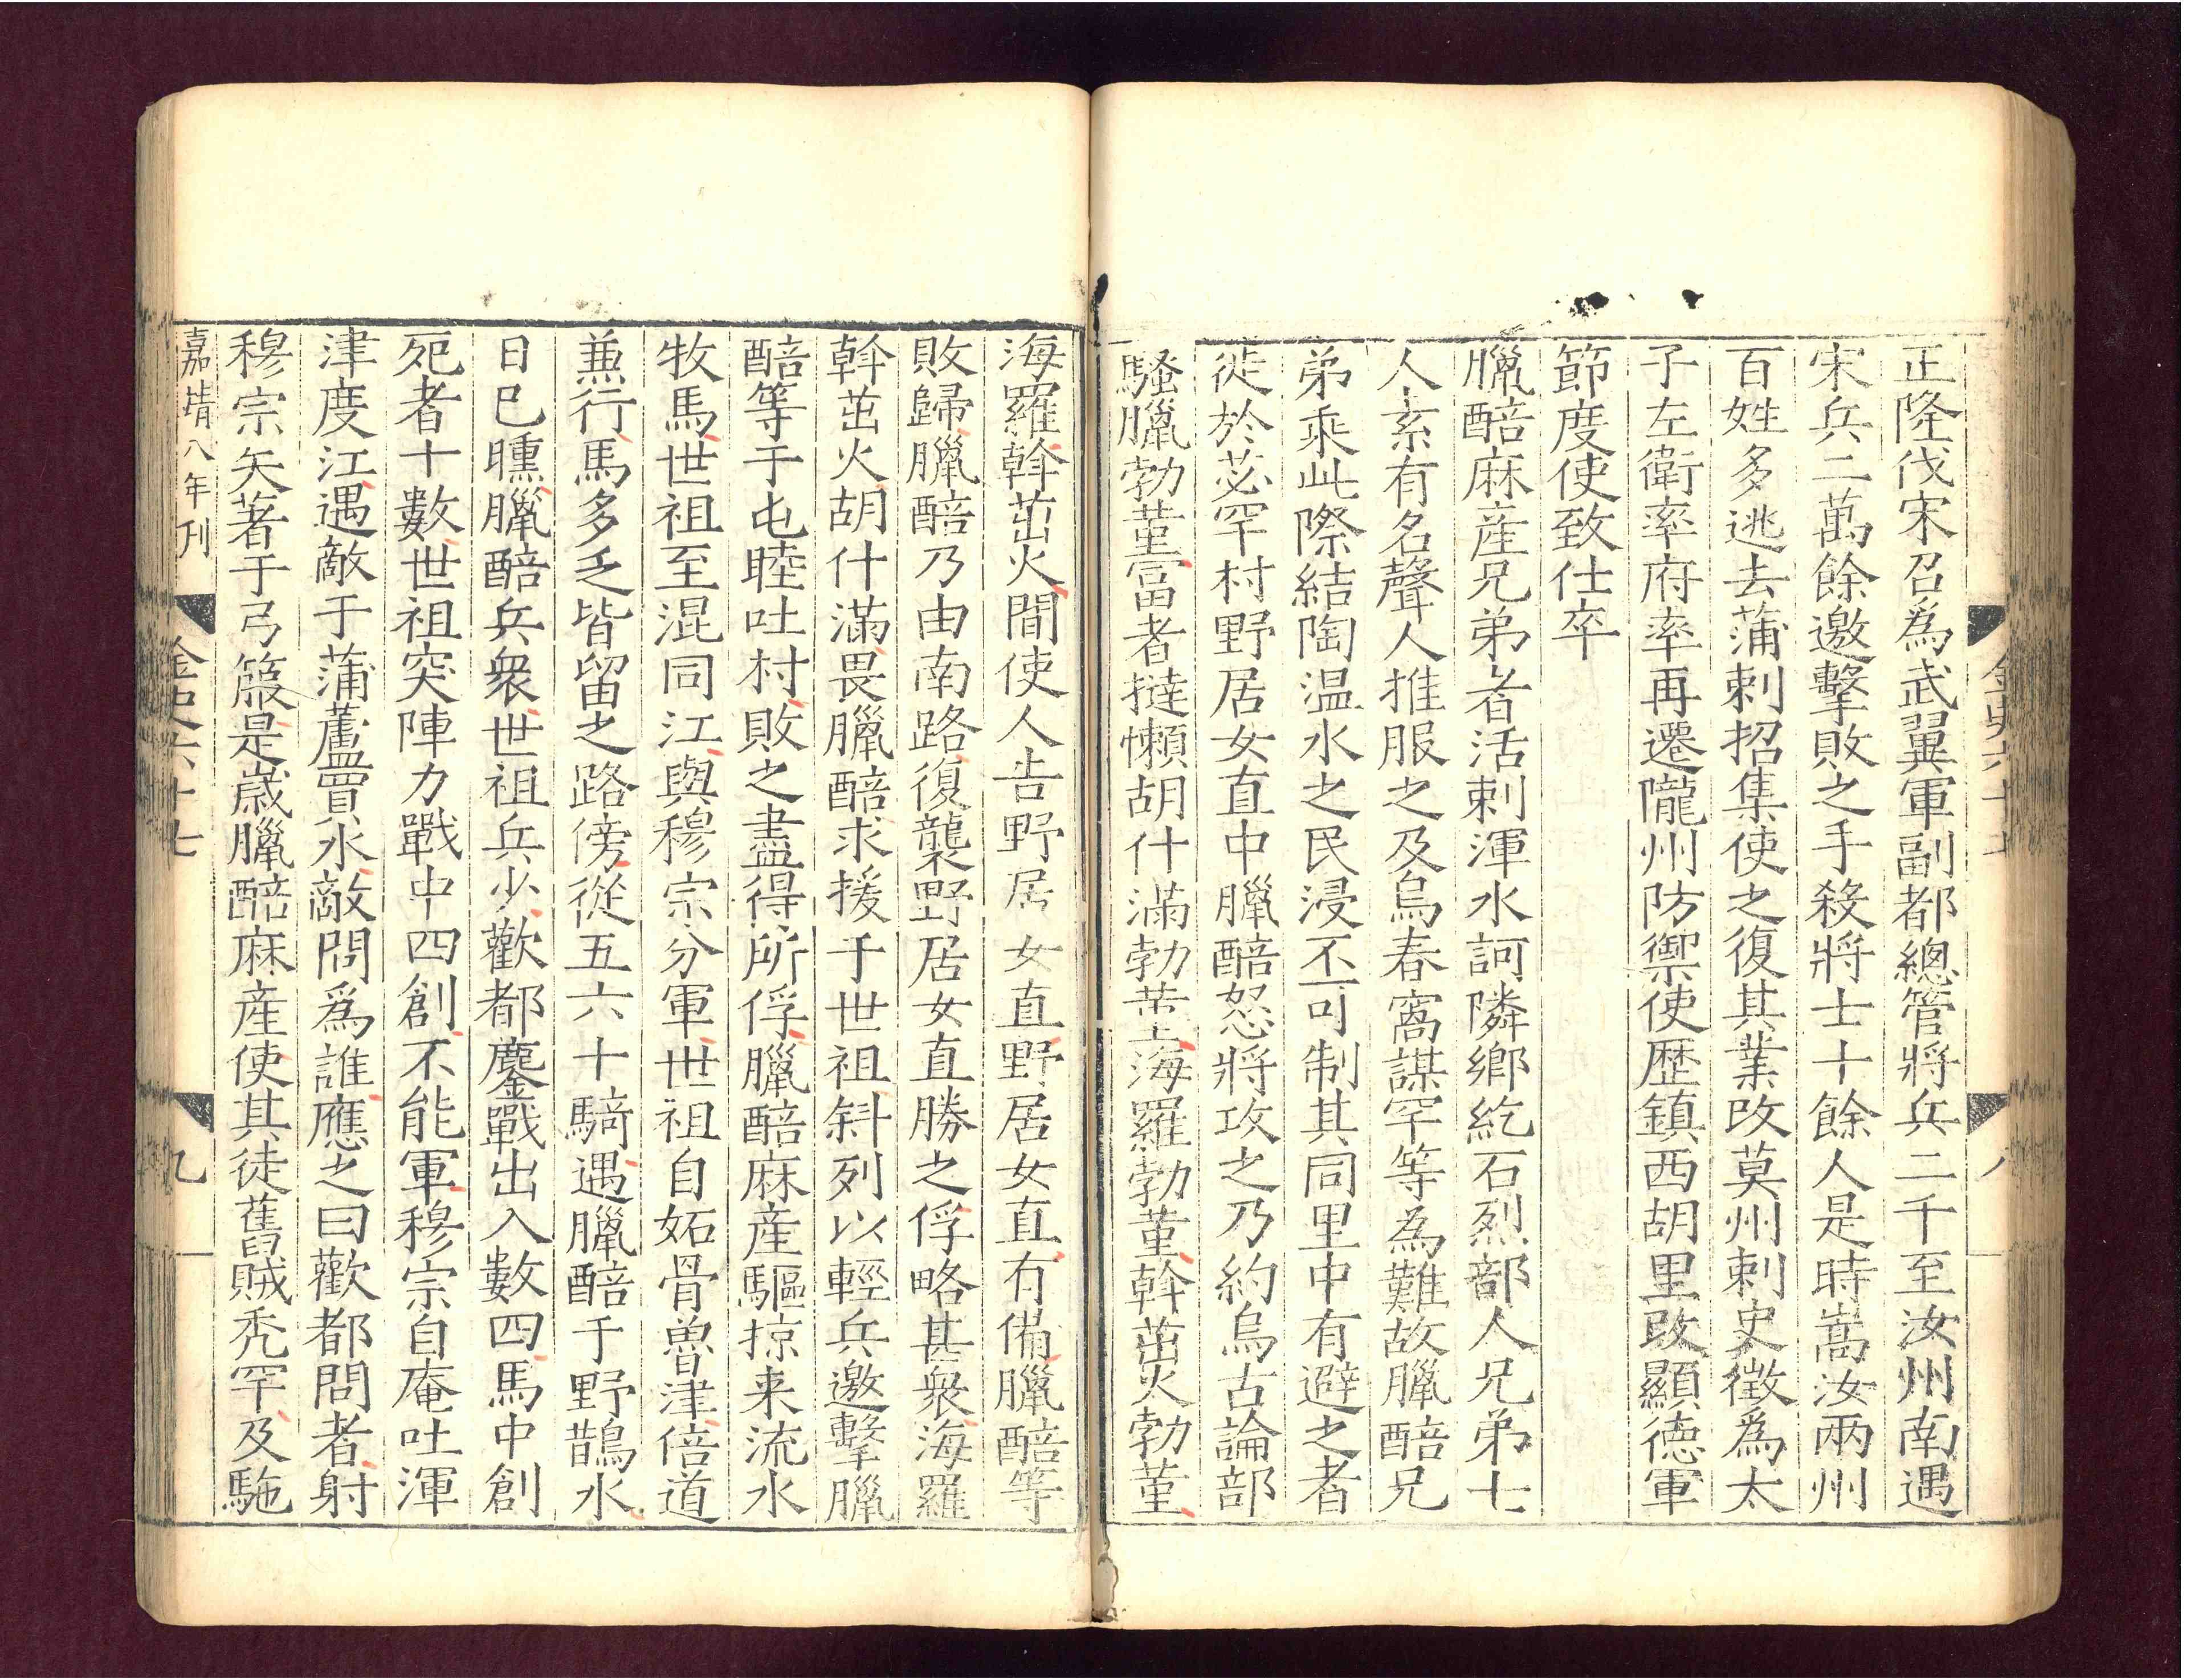 正隆伐宋召爲武翼軍副都總管將兵二千至汝州南遇
宋兵二萬餘邀擊敗之手殺將士十餘人是時嵩汝兩州
百姓多逃去蒲剌招集使之復其業改莫州刺史徵爲太
子左衛率府率再遷隴州防禦使歷鎮西胡里改顯德軍
節度使致仕卒
臘醅麻産兄弟者活剌渾水訶隣鄉紇石烈部人兄弟七
人素有名聲人推服之及烏春窩謀罕等為難故臘醅兄
弟乘此際結陶温水之民浸不可制其同里中有避之者
徙於苾罕村野居女直中臘醅怒將攻之乃約烏古論部
騷臘勃堇富者撻懶胡什滿勃堇海羅勃堇斡茁火勃堇
海羅斡茁火間使人告野居女直野居女直有備臘醅等
敗歸臘醅乃由南路復襲野居女直勝之俘略甚衆海羅
斡茁火胡什滿畏臘醅求援于世祖斜列以輕兵邀擊臘
醅等于屯睦吐村敗之盡得所俘臘醅麻産驅掠来流水
牧馬世祖至混同江與穆宗分軍世祖自妬骨魯津倍道
兼行馬多乏皆留之路傍從五六十騎遇臘醅于野鵲水
日已曛臘醅兵衆世祖兵少歡都鏖戰出入數四馬中創
死者十數世祖突陣力戰中四創不能軍穆宗自庵吐渾
津度江遇敵于蒲蘆買水敵問爲誰應之曰歡都問者射
穆宗矢著于弓箙是歲臘醅麻産使其徒舊賊禿罕及駞
嘉靖八年刊
金史六十七
九
金史六十七
八